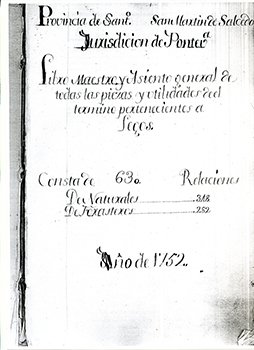 Provincia de Sanº. San Martin de Salcedo
Jurisdicion de Ponteª
Libro Maestro, y Asiento general de
todas las piezas y utilidades del
termino pertenecientes a
Legos.
Consta de 630 Relaciones
De Naturales 348
De Forasteros 282
Año de 1752.